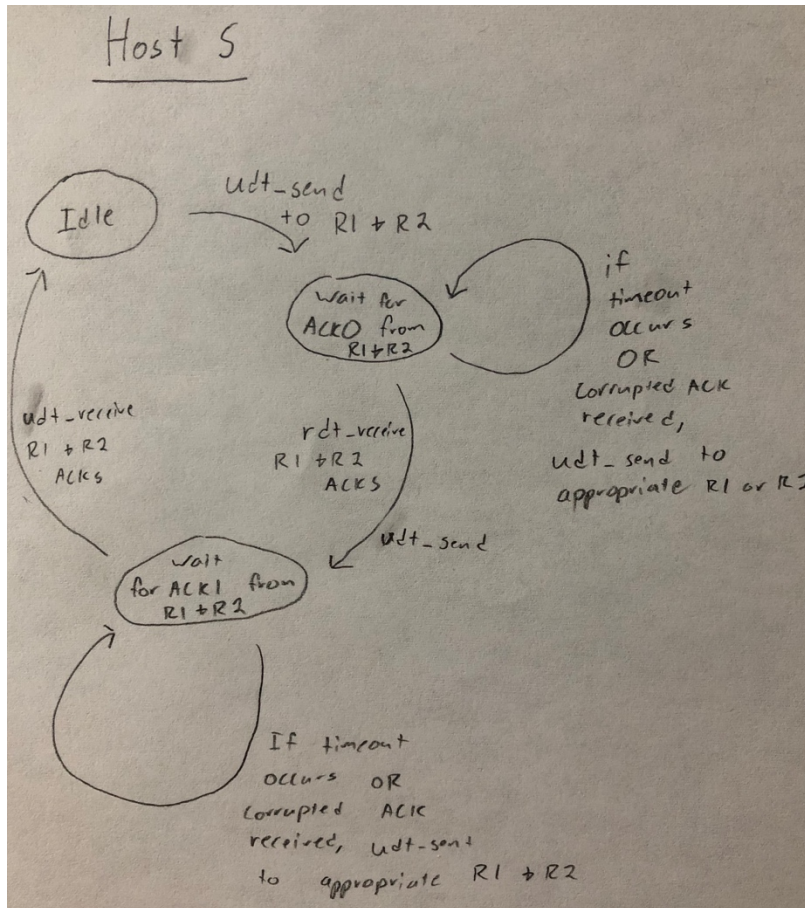 Host S
Idle
udt_send
to R1 + R2
wait for
ACK0 from
R1+R2
if
timeout
occurs
OR
corrupted ACK
received,
udt_send to
appropriate R1 or R2
rdt_receive
R1 + R2
ACKS
udt_send
udt_receive
R1 + R2
ACKS
wait
for ACK1 from
R1+R2
If timeout
occurs OR
corrupted ACK
received, udt-sent
to appropriate R1 + R2